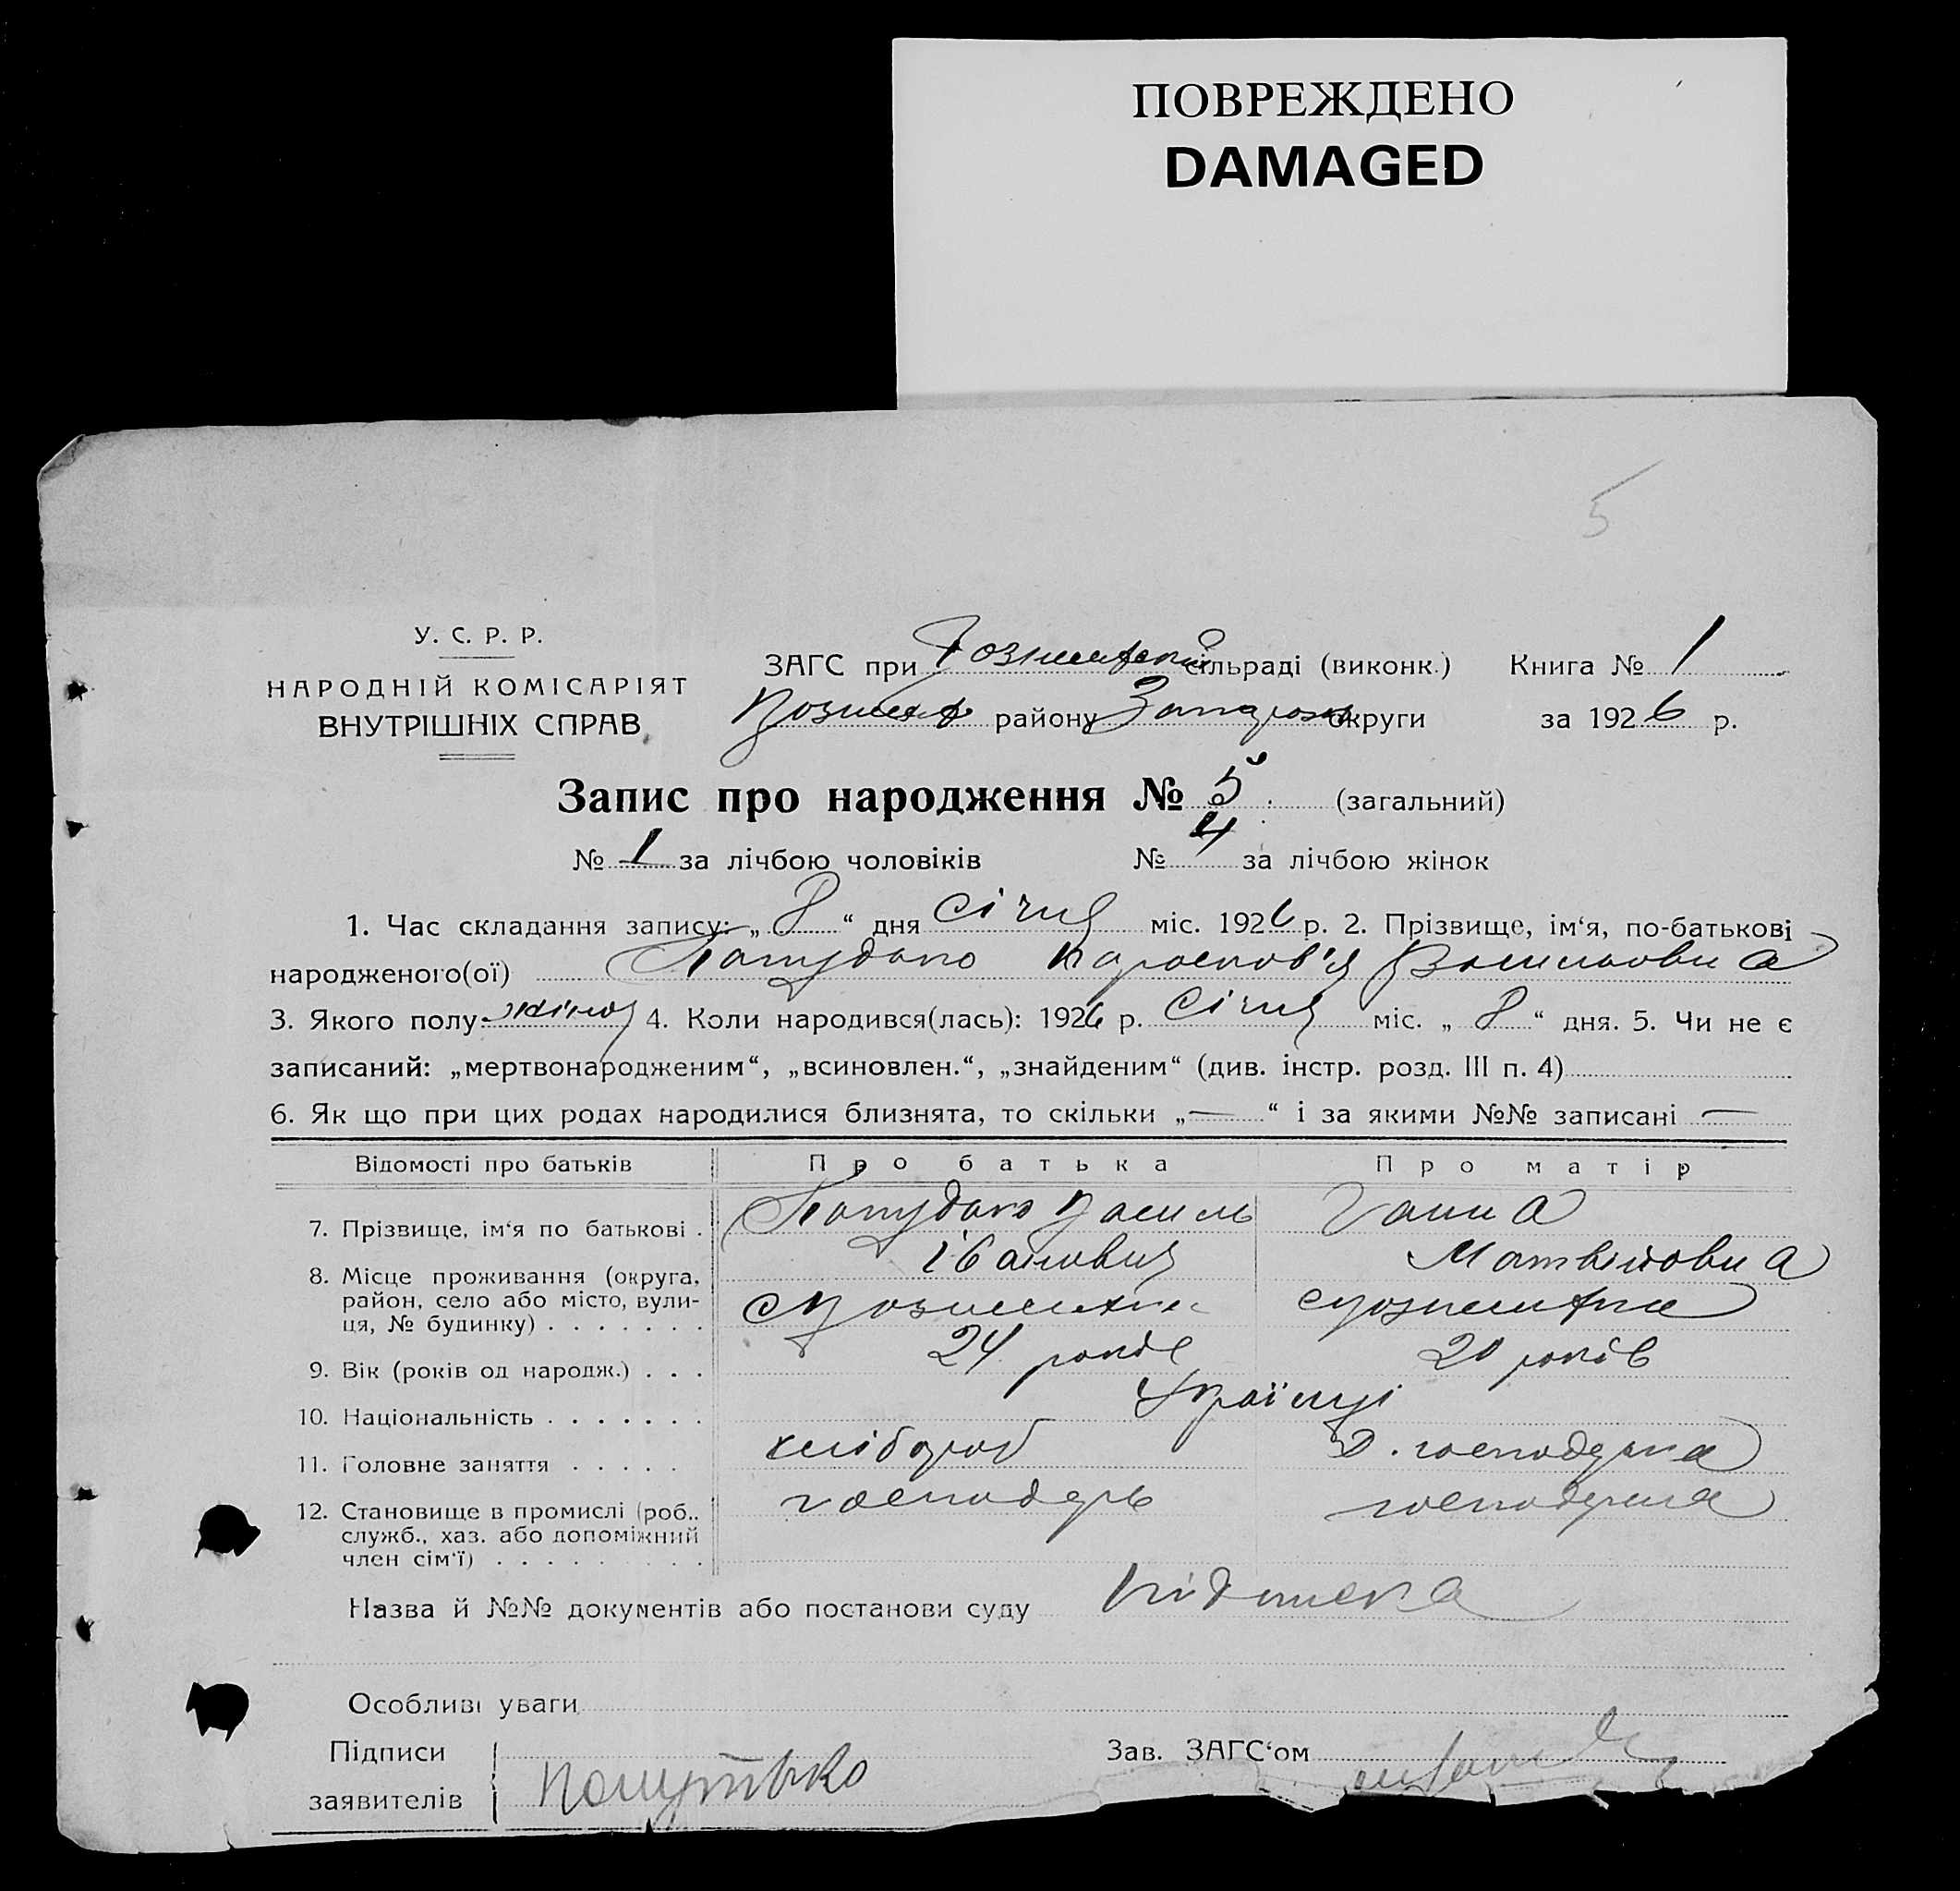 ПОВРЕЖДЕНО
DAMAGED
5
У. С. Р. Р.
НАРОДНІЙ КОМІСАРІЯТ
ВНУТРІШНІХ СПРАВ
ЗАГС при сільраді (виконк.) Книга № 1
району округи за 1926 р.
Запис про народження № 5 (загальний)
№ 1 за лічбою чоловіків № 4 за лічбою жінок
1. Час складання запису: „ 8 “ дня Січня міс. 1926 р. 2. Прізвище, ім‘я, по-батькові
народженого(ої) Василіовна
3. Якого полу жіноч 4. Коли народився(лась): 1926 р. Січня міс. „ 8 “ дня. 5. Чи не є
записаний: „мертвонародженим“, „всиновлен.“, „знайденим“ (див. інстр. розд. III п. 4)
6. Як що при цих родах народилися близнята, то скільки „—“ і за якими №№ записані —
Відомості про батьків Про батька Про матір
7. Прізвище, ім‘я по батькові . Василь Ганна
Іванович Матвійовна
8. Місце проживання (округа,
район, село або місто, вули-
ця, № будинку) . . . . . . .
9. Вік (років од народж.) . . . 24 років 20 років
10. Національність . . . . . . . Українці
11. Головне заняття . . . . . хлібороб д. господарка
12. Становище в промислі (роб.. господарь
служб., хаз. або допоміжний
член сім‘ї) . . . . . . . . .
Назва й №№ документів або постанови суду підписка
Особливі уваги
Підписи
заявителів
Зав. ЗАГС‘ом